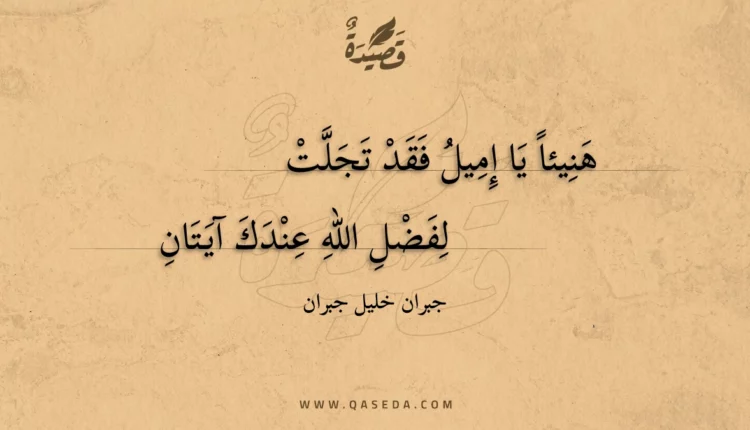 قَصِيْدَةٌ
هَنِيئاً يَا إِمِيلُ فَقَدْ تَجَلَّتْ
لِفَضْلِ اللهِ عِنْدَكَ آيَتَانِ
جبران خليل جبران
WWW.QASEDA.COM